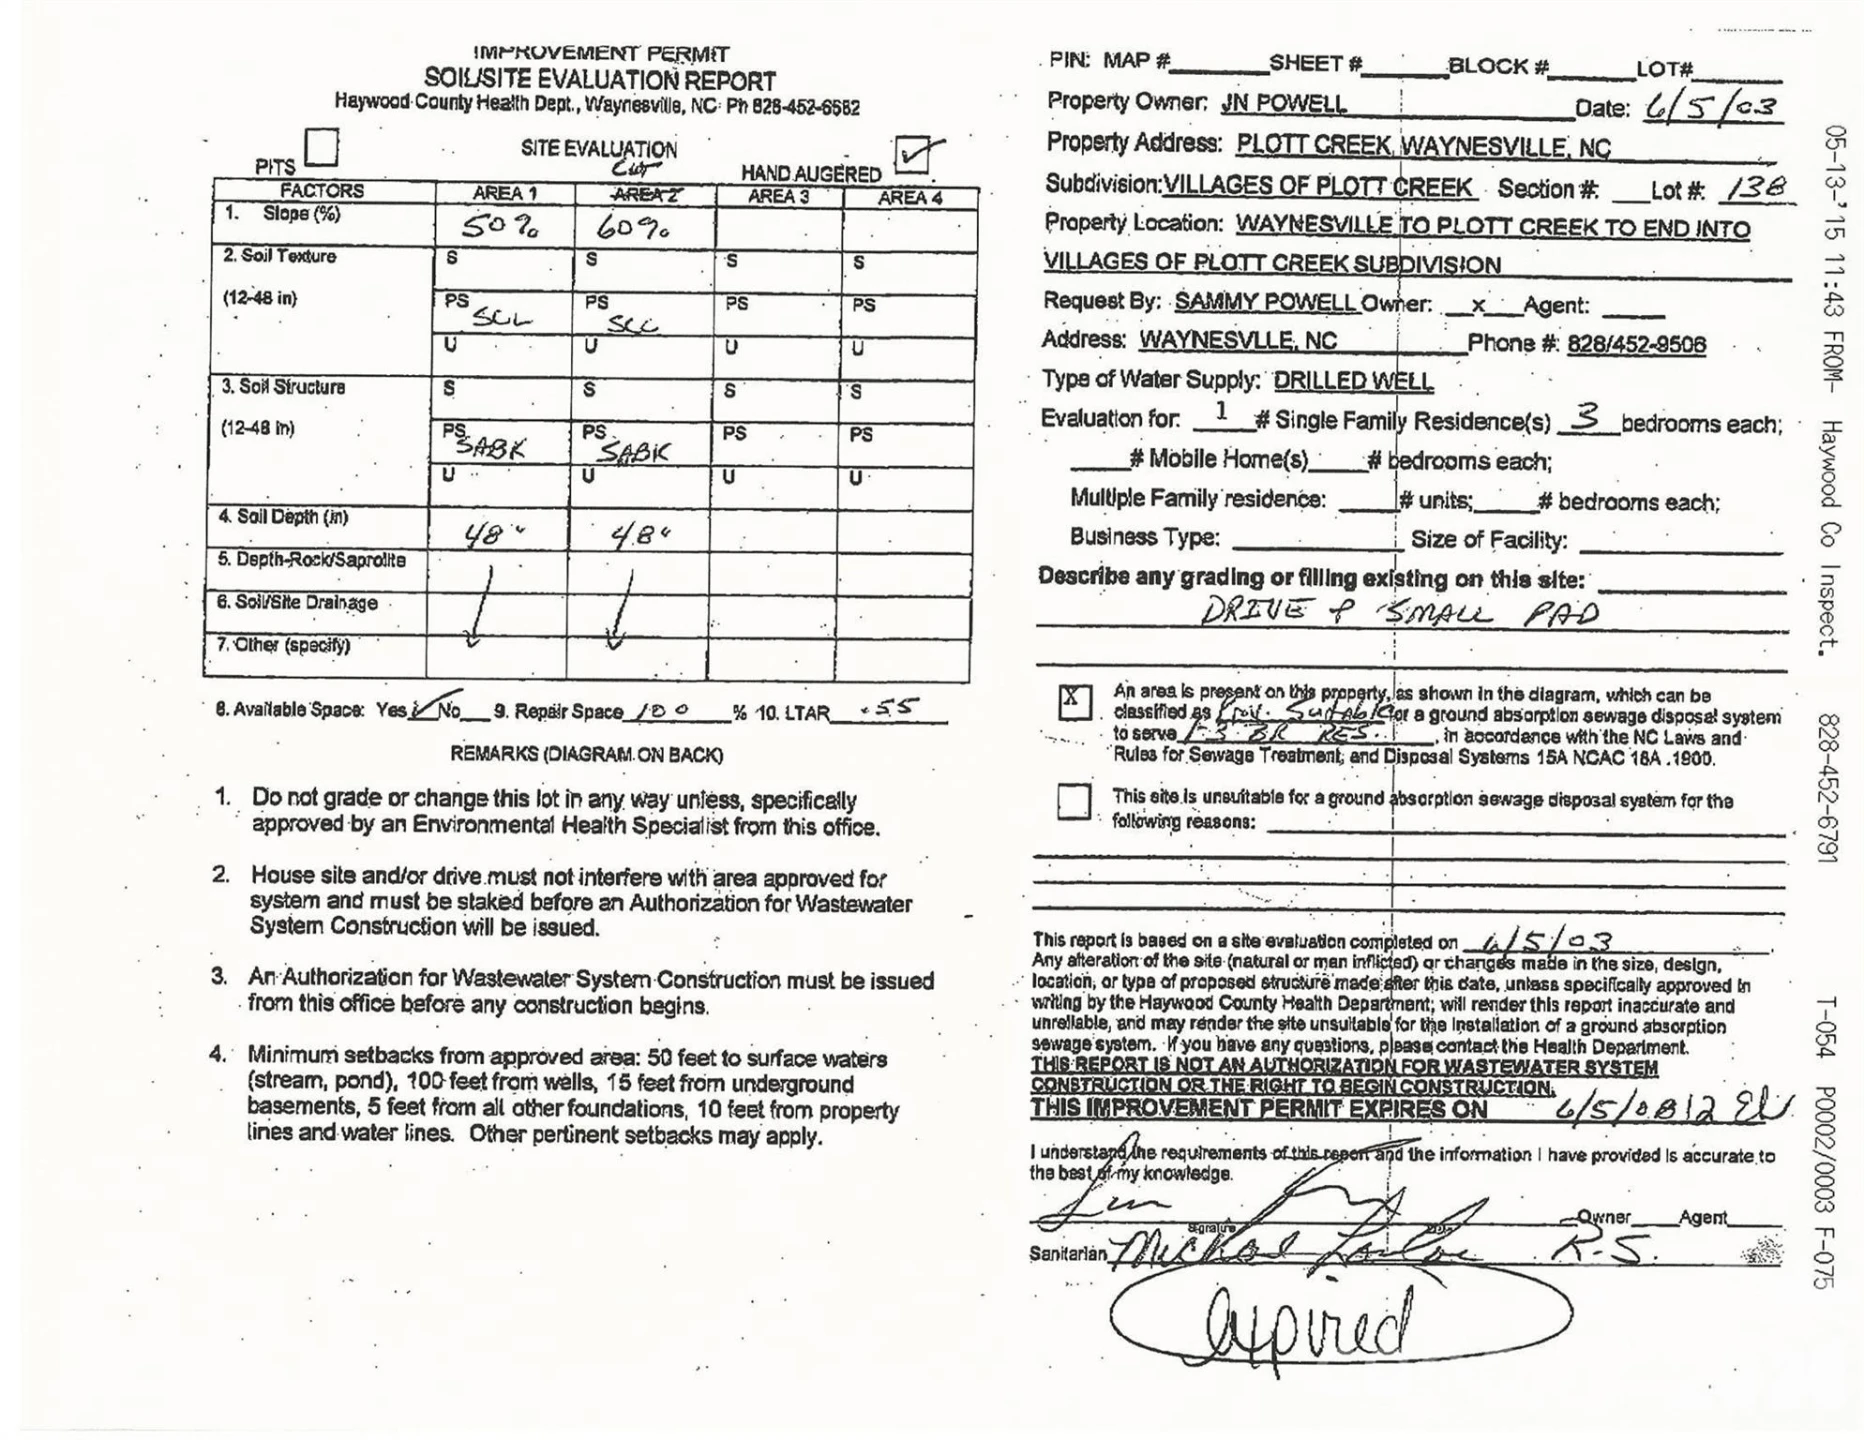 IMPROVEMENT PERMIT
SOIL/SITE EVALUATION REPORT
Haywood County Health Dept., Waynesville, NC Ph 828-452-6682
PITS
SITE EVALUATION
HAND AUGERED
Cut
FACTORS AREA 1 AREA 2 AREA 3 AREA 4
1. Slope (%) 50% 60%
2. Soil Texture S S S S
(12-48 in) PS SCL PS SCL PS PS
U U U U
3. Soil Structure S S S S
(12-48 in) PS SABK PS SABK PS PS
U U U U
4. Soil Depth (in) 48" 48"
5. Depth-Rock/Saprolite
6. Soil/Site Drainage
7. Other (specify)
8. Available Space: Yes ✓ No 9. Repair Space 100 % 10. LTAR .55
REMARKS (DIAGRAM ON BACK)
1. Do not grade or change this lot in any way unless, specifically
approved by an Environmental Health Specialist from this office.
2. House site and/or drive must not interfere with area approved for
system and must be staked before an Authorization for Wastewater
System Construction will be issued.
3. An Authorization for Wastewater System Construction must be issued
from this office before any construction begins.
4. Minimum setbacks from approved area: 50 feet to surface waters
(stream, pond), 100 feet from wells, 15 feet from underground
basements, 5 feet from all other foundations, 10 feet from property
lines and water lines. Other pertinent setbacks may apply.
PIN: MAP # SHEET # BLOCK # LOT#
Property Owner: JN POWELL Date: 6/5/03
Property Address: PLOTT CREEK, WAYNESVILLE, NC
Subdivision: VILLAGES OF PLOTT CREEK Section #: Lot #: 138
Property Location: WAYNESVILLE TO PLOTT CREEK TO END INTO
VILLAGES OF PLOTT CREEK SUBDIVISION
Request By: SAMMY POWELL Owner: x Agent:
Address: WAYNESVLLE, NC Phone #: 828/452-9506
Type of Water Supply: DRILLED WELL
Evaluation for: 1 # Single Family Residence(s) 3 bedrooms each;
# Mobile Home(s) # bedrooms each;
Multiple Family residence: # units; # bedrooms each;
Business Type: Size of Facility:
Describe any grading or filling existing on this site:
DRIVE & SMALL PAD
X An area is present on this property, as shown in the diagram, which can be
classified as Prov. Suitable for a ground absorption sewage disposal system
to serve 1-3 BR RES. , in accordance with the NC Laws and
Rules for Sewage Treatment, and Disposal Systems 15A NCAC 18A .1900.
This site is unsuitable for a ground absorption sewage disposal system for the
following reasons:
This report is based on a site evaluation completed on 6/5/03
Any alteration of the site (natural or man inflicted) or changes made in the size, design,
location, or type of proposed structure made after this date, unless specifically approved in
writing by the Haywood County Health Department; will render this report inaccurate and
unreliable, and may render the site unsuitable for the installation of a ground absorption
sewage system. If you have any questions, please contact the Health Department.
THIS REPORT IS NOT AN AUTHORIZATION FOR WASTEWATER SYSTEM
CONSTRUCTION OR THE RIGHT TO BEGIN CONSTRUCTION.
THIS IMPROVEMENT PERMIT EXPIRES ON 6/5/08
I understand the requirements of this report and the information I have provided is accurate to
the best of my knowledge.
Signature Owner Agent
Sanitarian Michael R.S.
expired
05-13-'15 11:43 FROM- Haywood Co Inspect. 828-452-6791 T-054 P0002/0003 F-075